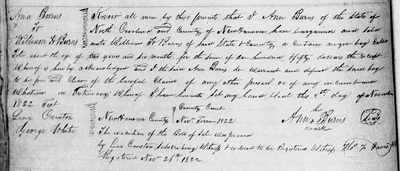 Ann Burns
to
William H Burns
Know all men by these presents that I Ann Burns of the State of
North Carolina and County of New Hanover have bargained and sold
unto William H Burns of said State & County, a certain negro boy
the age of two years and six months, for the sum of one hundred fifty dollars the receipt
Whereof is hereby acknowledged and I the said Ann Burns do warrant and defend the said boy
to be free and clear of the lawful claims of any other person or of any
Whatever in Testimony Whereof I have hereunto set my hand & seal the day of November
1822 Test
Levi
George White
her
Ann X Burns Seal
mark
County Court
New Hanover County Nov. Term 1822
The execution of the Bill of Sale was proved
by Levi Subscribing Witness & ordered to be Registered Witness
Registered Nov. 26th 1822